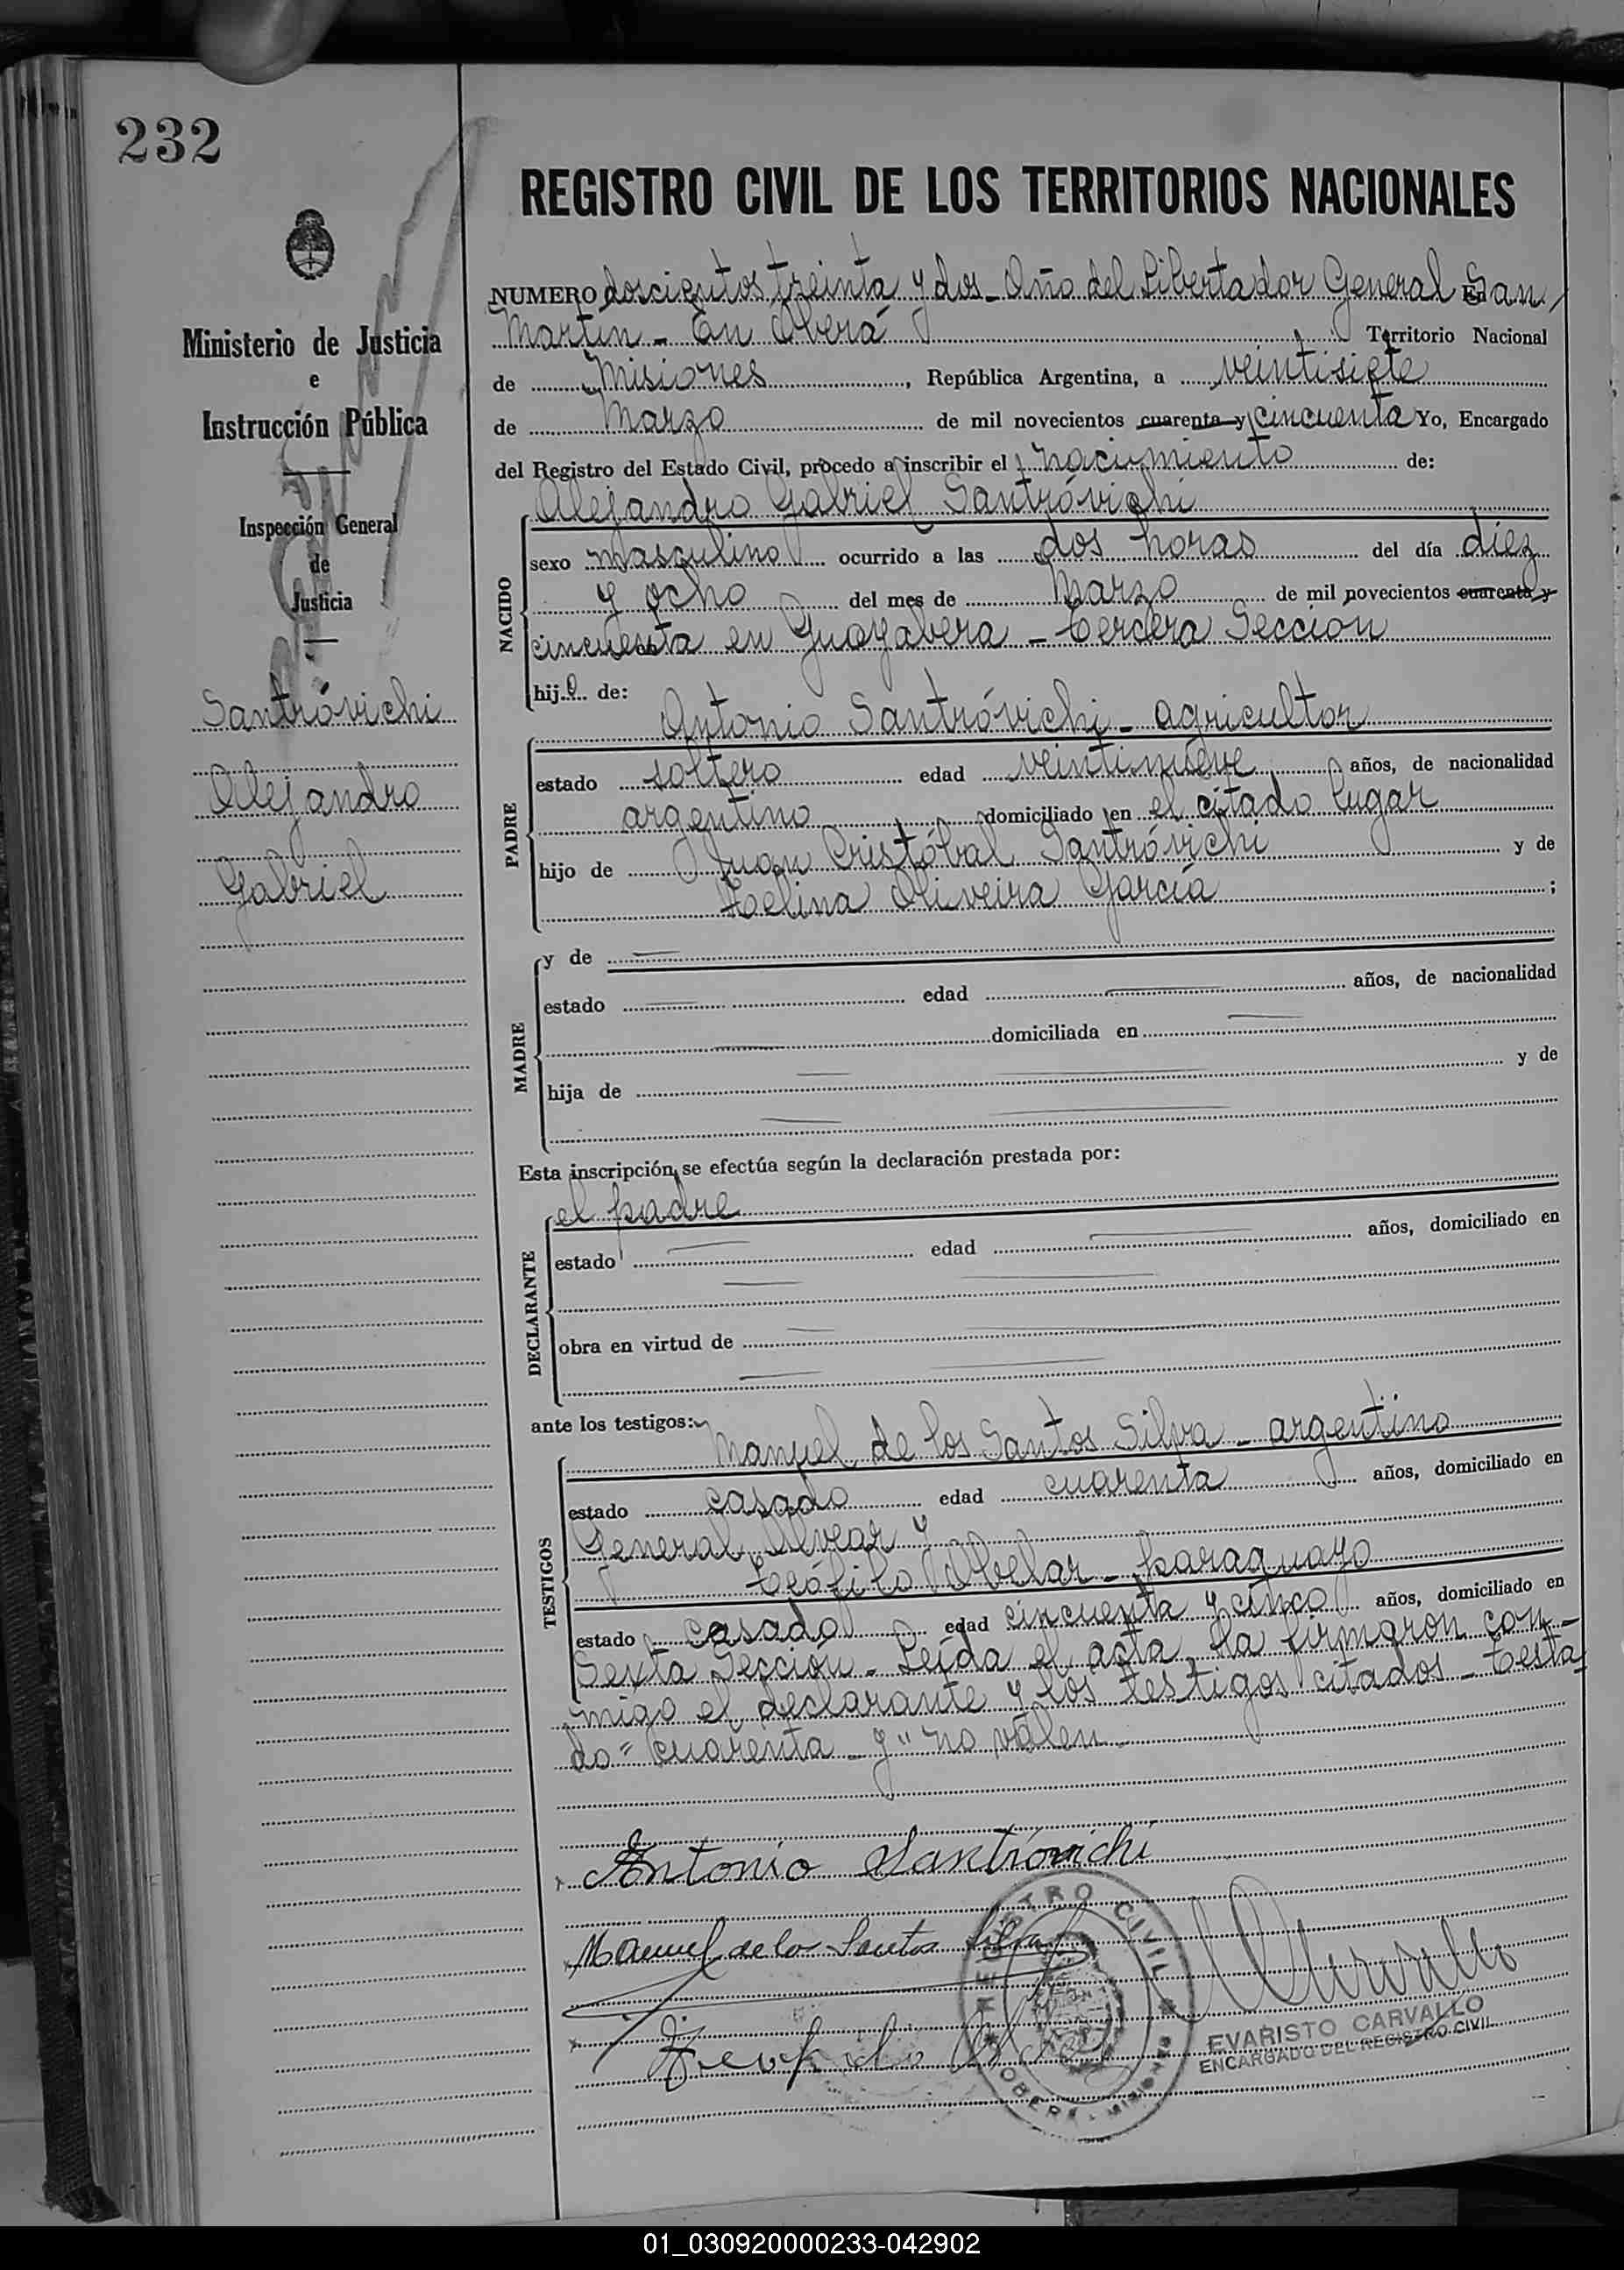 232
REGISTRO CIVIL DE LOS TERRITORIOS NACIONALES
Ministerio de Justicia
e
Instrucción Pública
Inspección General
de
Justicia
Santróvichi
Alejandro
Gabriel
NUMERO doscientos treinta y dos - Año del Libertador General San
Martín - En Oberá Territorio Nacional
de Misiones, República Argentina, a veintisiete
de Marzo de mil novecientos cuarenta y cincuenta Yo, Encargado
del Registro del Estado Civil, procedo a inscribir el nacimiento de:
Alejandro Gabriel Santróvichi
NACIDO
sexo masculino ocurrido a las dos horas del día diez
y ocho del mes de Marzo de mil novecientos cuarenta y
cincuenta en Guayabera - Tercera Sección
hijo de:
Antonio Santróvichi - agricultor
PADRE
estado soltero edad veintinueve años, de nacionalidad
argentino domiciliado en el citado lugar
hijo de Juan Cristóbal Santróvichi y de
Oliveira García ;
MADRE
y de
estado edad años, de nacionalidad
domiciliada en
hija de y de
Esta inscripción se efectúa según la declaración prestada por:
el padre
DECLARANTE
estado edad años, domiciliado en
obra en virtud de
ante los testigos:
Manuel de los Santos Silva - argentino
TESTIGOS
estado casado edad cuarenta años, domiciliado en
General Alvear y
Teófilo Abelar - paraguayo
estado casado edad cincuenta y cinco años, domiciliado en
Sexta Sección - Leída el acta, la firmaron con-
migo el declarante y los testigos citados - Testa
do " cuarenta - y " no valen -
Antonio Santróvichi
Manuel de los Santos Silva
REGISTRO CIVIL
OBERA - MISIONES
EVARISTO CARVALLO
ENCARGADO DEL REGISTRO CIVIL
01_030920000233-042902